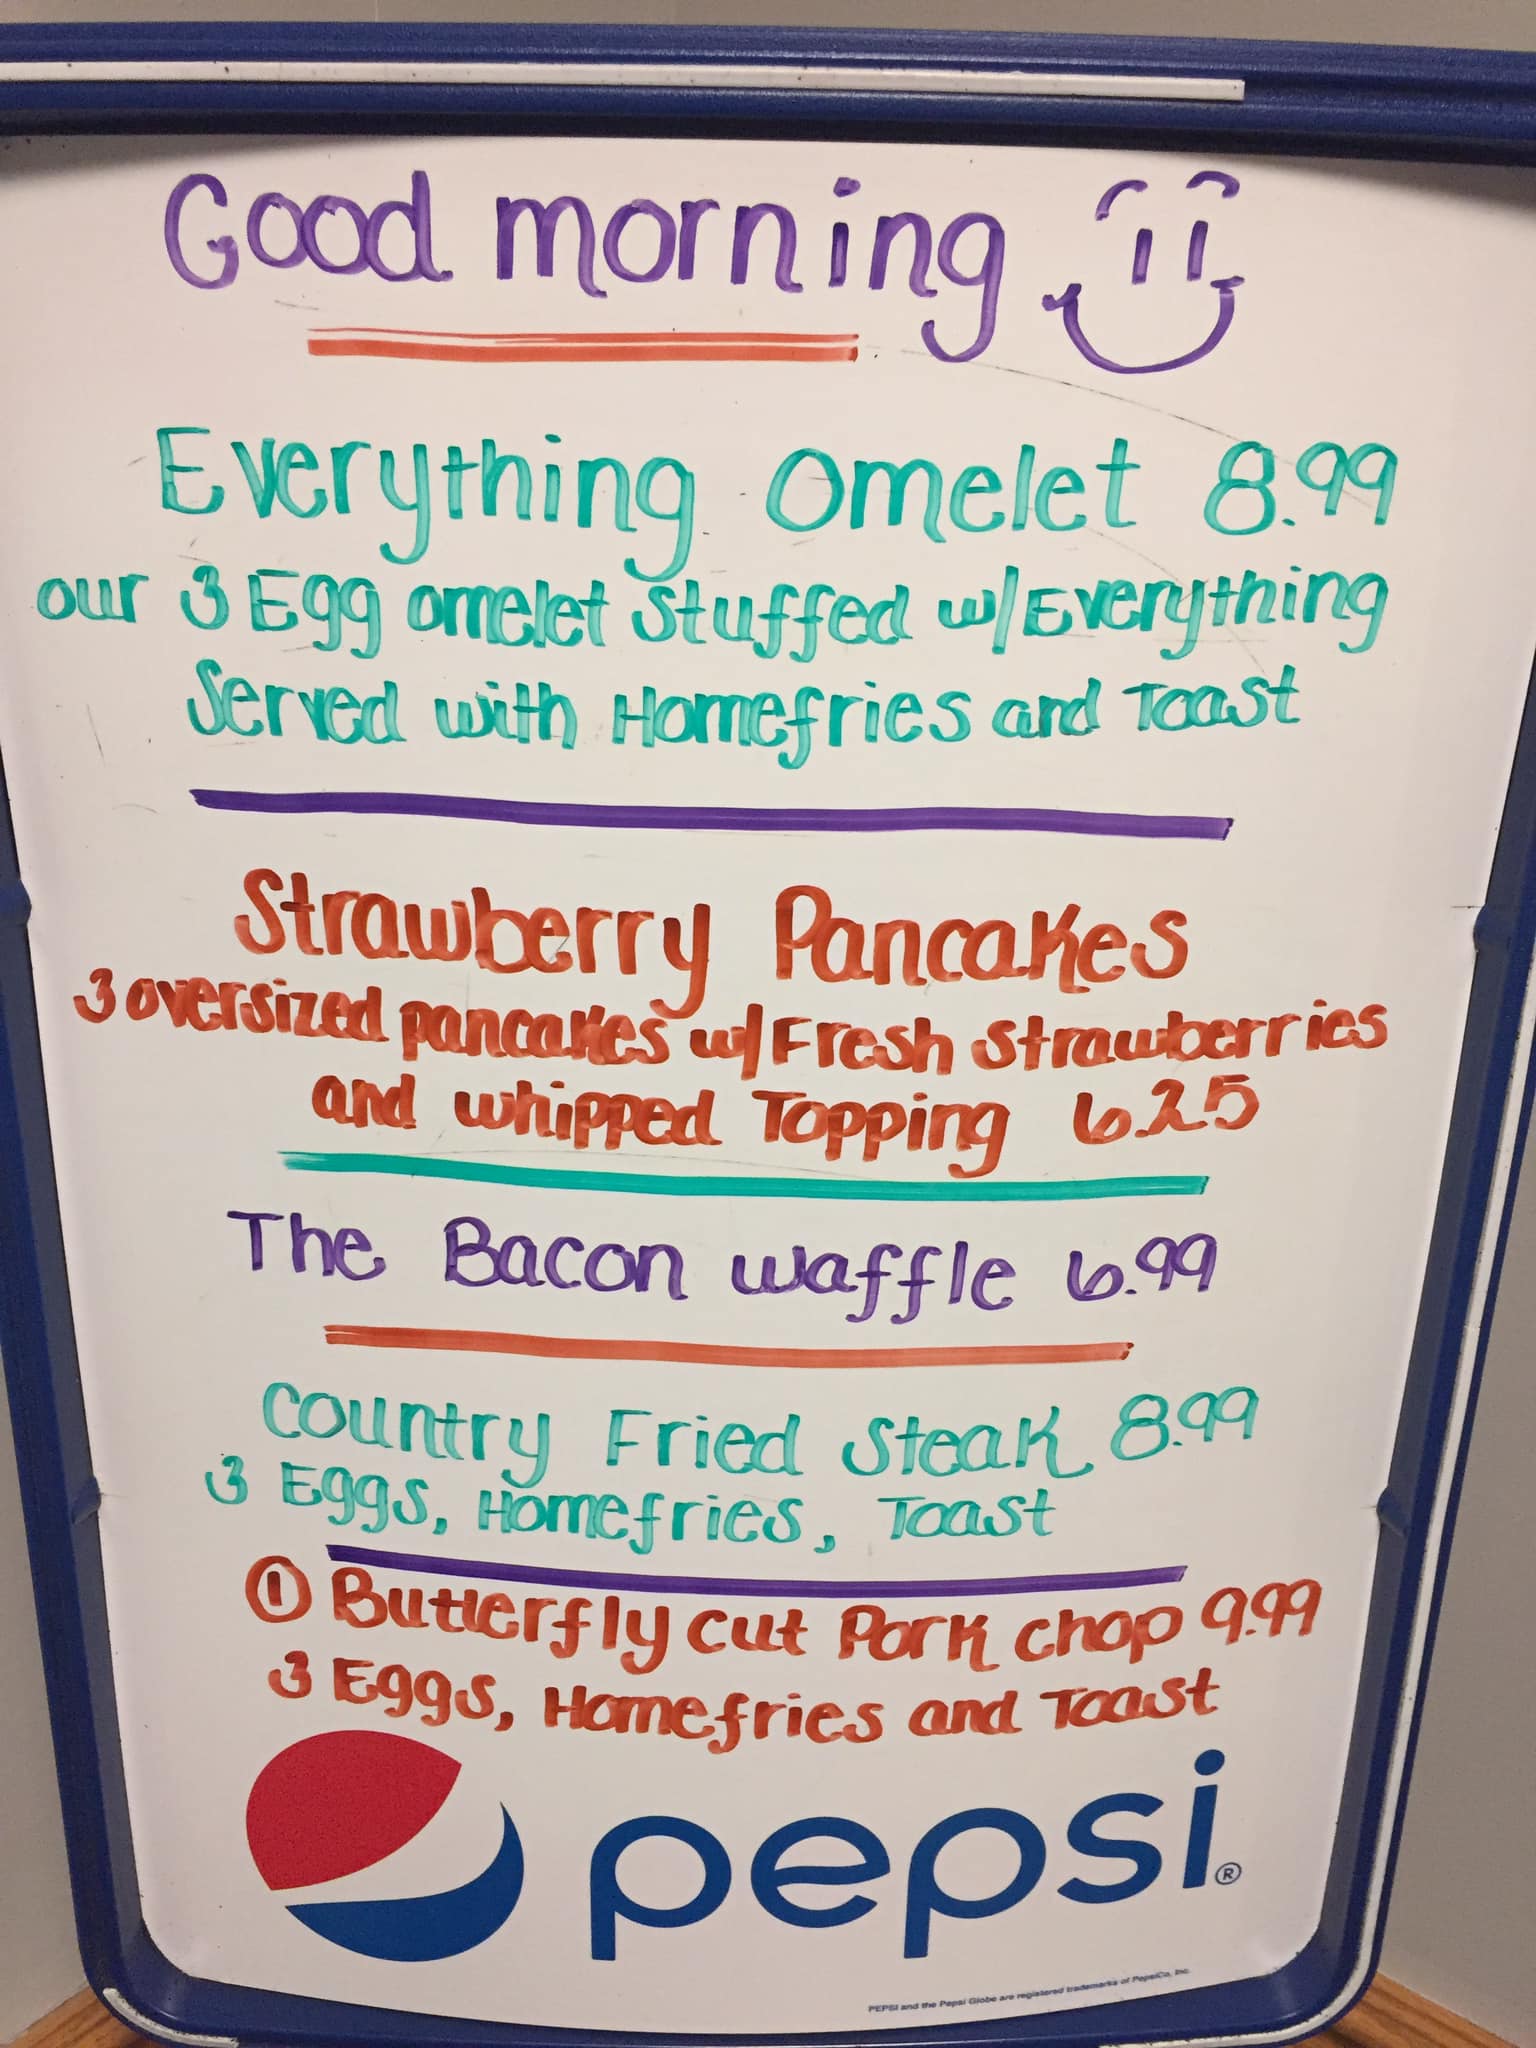 Good morning
Everything Omelet 8.99
our 3 Egg omelet Stuffed w/Everything
Served with Homefries and Toast
Strawberry Pancakes
3 oversized pancakes w/Fresh Strawberries
and whipped Topping 6.25
The Bacon waffle 6.99
Country Fried Steak 8.99
3 Eggs, Homefries, Toast
① Butterfly cut Pork chop 9.99
3 Eggs, Homefries and Toast
pepsi®
PEPSI and the Pepsi Globe are registered trademarks of PepsiCo, Inc.